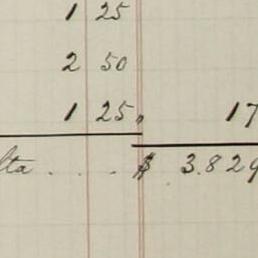 1 25
2 50
1 25 17
lta . . . $ 3.829